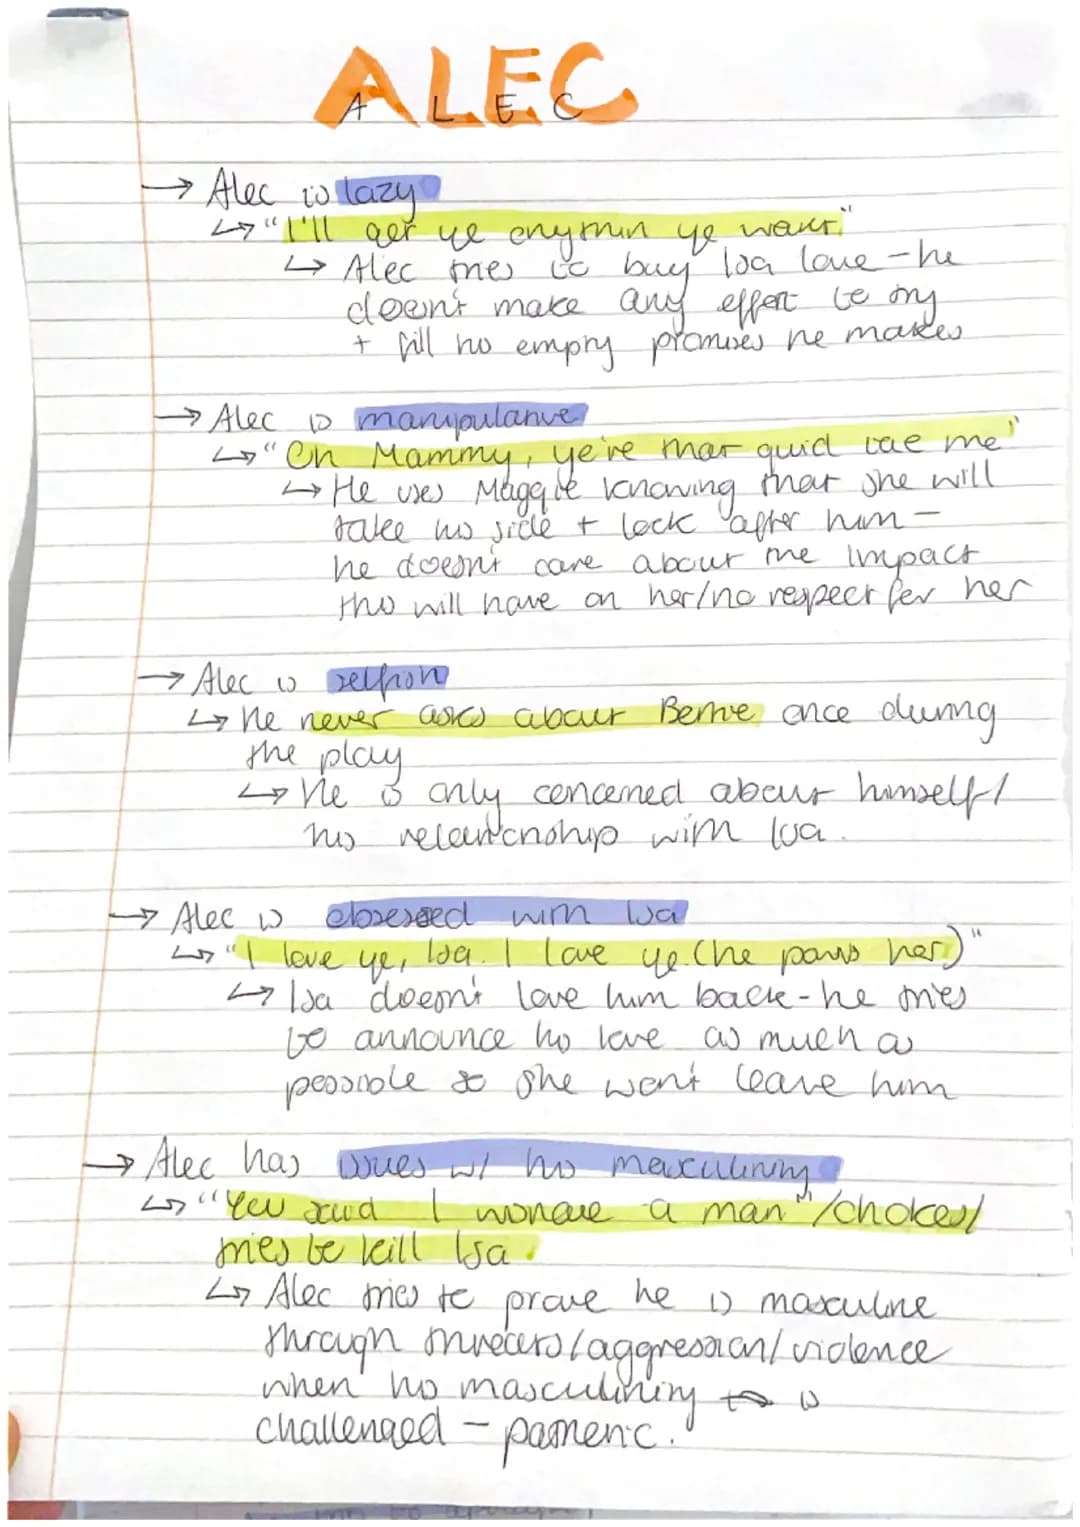 ALEC
A L E C
→ Alec is lazy
↳ "I'll get ye onythin ye want."
↳ Alec tries to buy Isa love - he
doesn't make any effort to try
+ fill his empty promises he makes
→ Alec is manipulative
↳ "Oh Mammy, ye're that guid tae me"
↳ He uses Maggie knowing that she will
take his side + look after him -
he doesn't care about the impact
this will have on her/no respect for her
→ Alec is selfish
↳ he never asks about Bertie once during
the play
↳ He is only concerned about himself/
his relationship with Isa.
→ Alec is obsessed with Isa
↳ "I love ye, Isa. I love ye. (he paws her)"
↳ Isa doesn't love him back - he tries
to announce his love as much as
possible so she won't leave him
→ Alec has issues w/ his masculinity
↳ "You said I wisnae a man"/chokes/
tries to kill Isa.
↳ Alec tries to prove he is masculine
through threats/aggression/violence
when his masculinity is
challenged - pathetic.